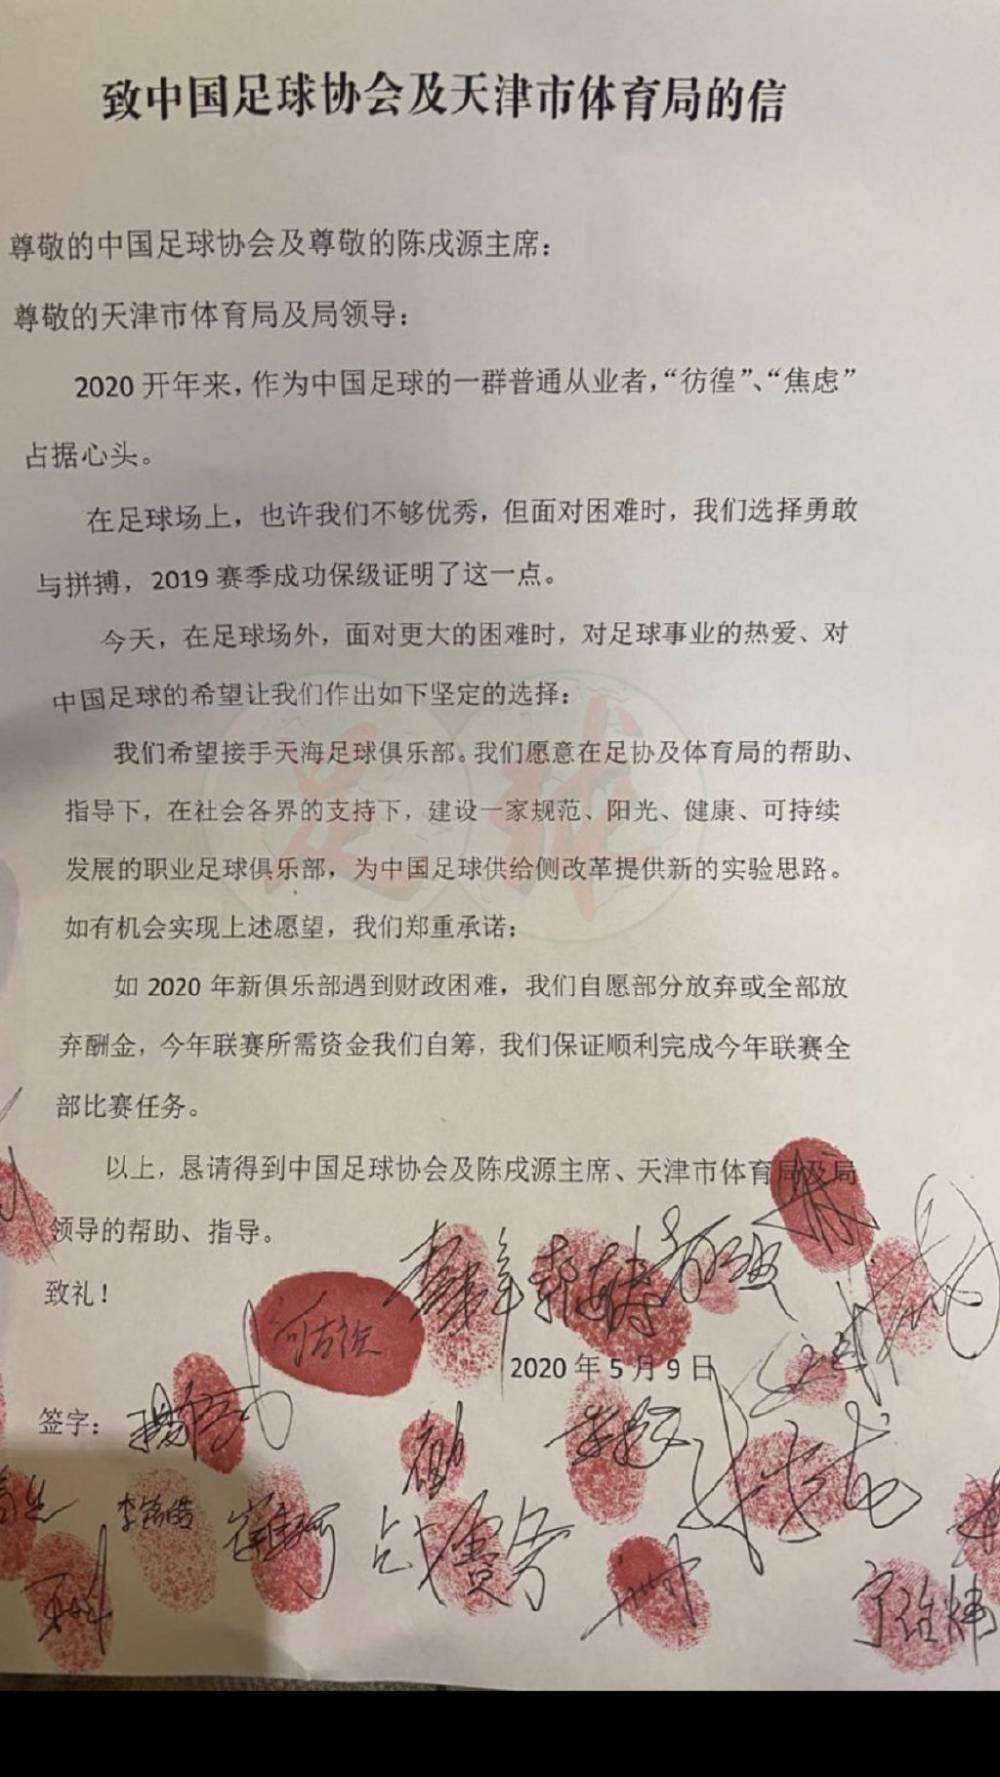 致中国足球协会及天津市体育局的信
尊敬的中国足球协会及尊敬的陈戌源主席：
尊敬的天津市体育局及局领导：
2020 开年来，作为中国足球的一群普通从业者，“彷徨”、“焦虑”
占据心头。
在足球场上，也许我们不够优秀，但面对困难时，我们选择勇敢
与拼搏，2019 赛季成功保级证明了这一点。
今天，在足球场外，面对更大的困难时，对足球事业的热爱、对
中国足球的希望让我们作出如下坚定的选择：
我们希望接手天海足球俱乐部。我们愿意在足协及体育局的帮助、
指导下，在社会各界的支持下，建设一家规范、阳光、健康、可持续
发展的职业足球俱乐部，为中国足球供给侧改革提供新的实验思路。
如有机会实现上述愿望，我们郑重承诺；
如 2020 年新俱乐部遇到财政困难，我们自愿部分放弃或全部放
弃酬金，今年联赛所需资金我们自筹，我们保证顺利完成今年联赛全
部比赛任务。
以上，恳请得到中国足球协会及陈戌源主席、天津市体育局及局
领导的帮助、指导。
致礼！
2020 年 5 月 9 日
签字：
足球